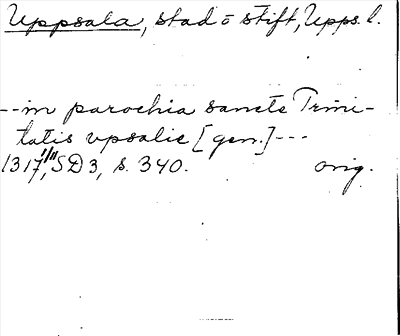 Uppsala, stad o stift, Upps. l.
--in parochia sancte Trini-
tatis vpsalie [gen.]---
1317 1/11, SD3, s. 340. orig.